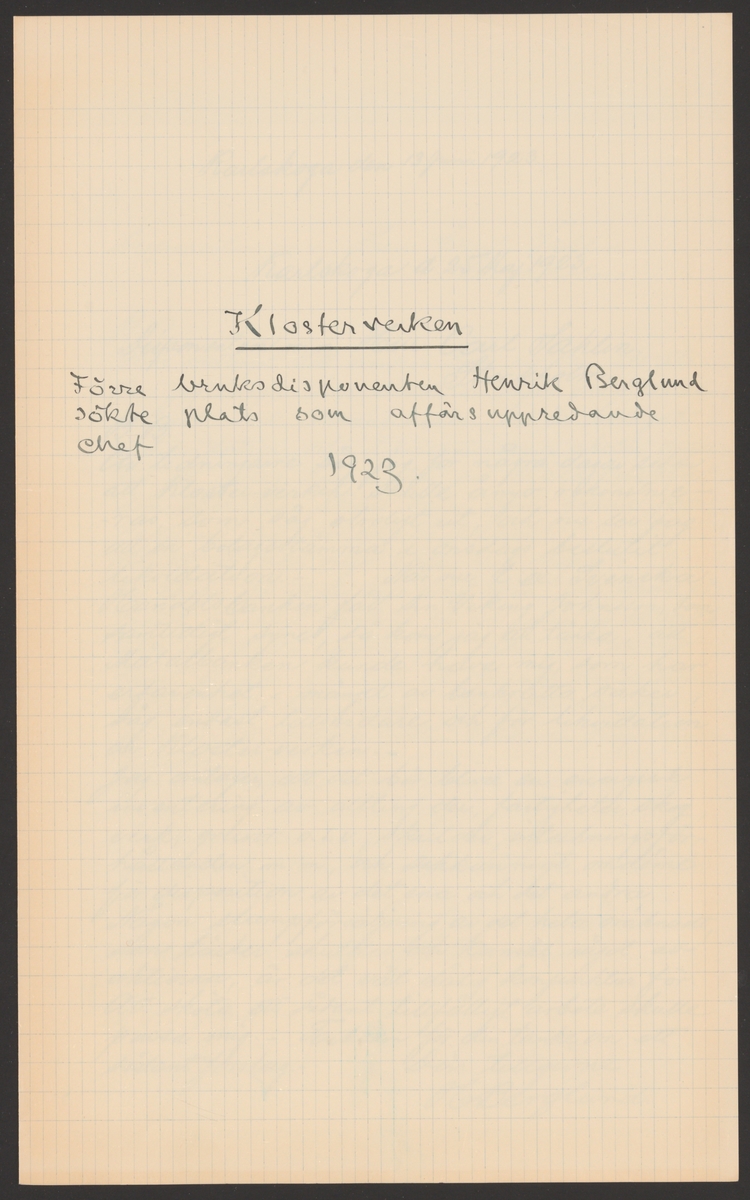 Klosterverken
Förre bruksdisponenten Henrik Berglund
sökte plats som affärsuppredande
chef
1923.